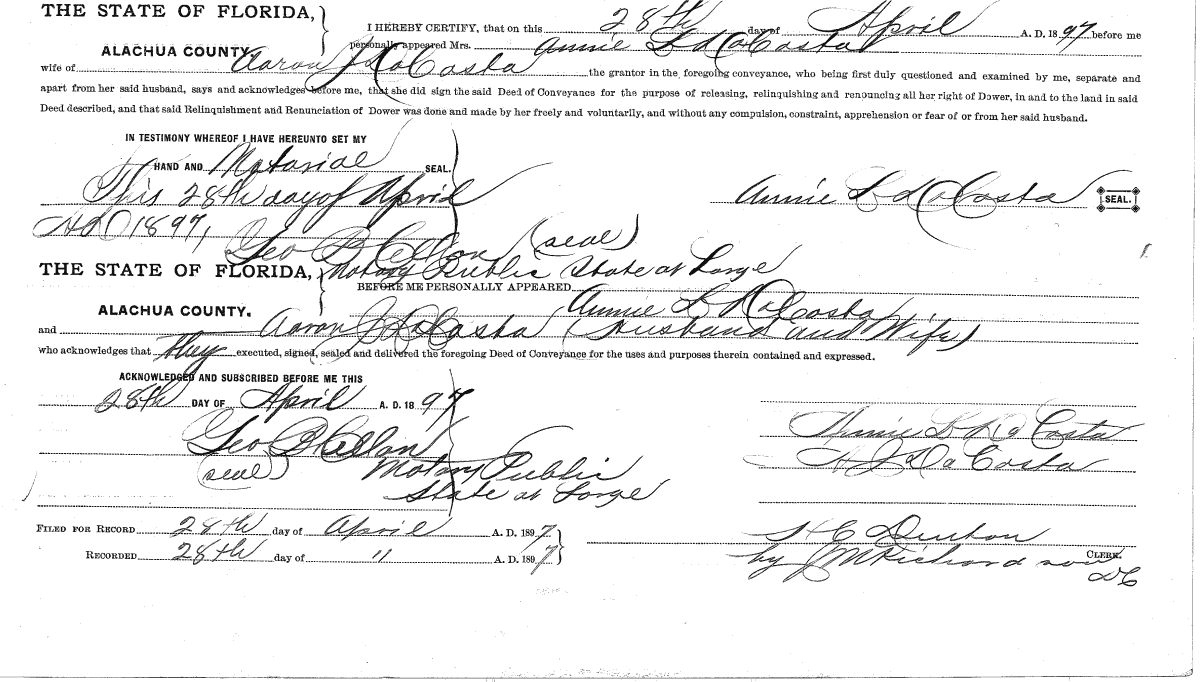 THE STATE OF FLORIDA, I HEREBY CERTIFY, that on this 28th day of April A. D. 1897 before me
ALACHUA COUNTY. personally appeared Mrs. Annie L DaCosta
wife of Aaron J DaCosta the grantor in the foregoing conveyance, who being first duly questioned and examined by me, separate and
apart from her said husband, says and acknowledges before me, that she did sign the said Deed of Conveyance for the purpose of releasing, relinquishing and renouncing all her right of Dower, in and to the land in said
Deed described, and that said Relinquishment and Renunciation of Dower was done and made by her freely and voluntarily, and without any compulsion, constraint, apprehension or fear of or from her said husband.
IN TESTIMONY WHEREOF I HAVE HEREUNTO SET MY
HAND AND Notarial SEAL.
This 28th day of April Annie L DaCosta SEAL.
AD 1897,
Geo B Ellan (seal)
THE STATE OF FLORIDA, Notary Public State at Large
BEFORE ME PERSONALLY APPEARED
ALACHUA COUNTY. Annie L DaCosta
and Aaron J DaCosta (Husband and Wife)
who acknowledges that they executed, signed, sealed and delivered the foregoing Deed of Conveyance for the uses and purposes therein contained and expressed.
ACKNOWLEDGED AND SUBSCRIBED BEFORE ME THIS
28th DAY OF April A. D. 1897
Geo B Ellan Annie L Da Costa
(seal) Notary Public A J Da Costa
State at Large
FILED FOR RECORD 28th day of April A. D. 1897 H C Denton
RECORDED 28th day of " A. D. 1897 CLERK.
by J M Richardson
DC